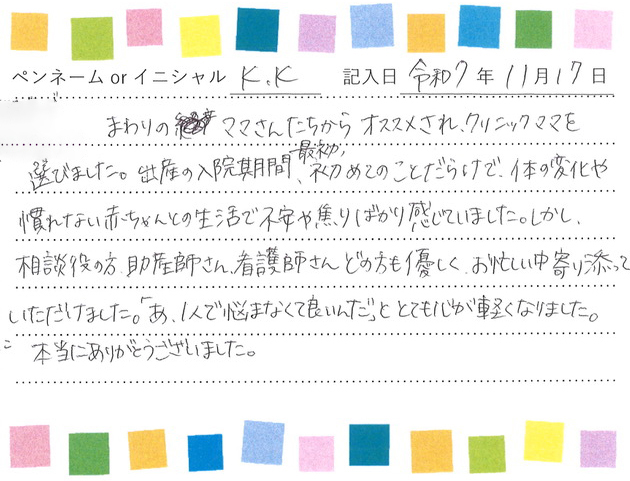 ペンネーム or イニシャル K.K 記入日 令和7年11月17日
まわりの ママさんたちから オススメされ、クリニックママを
選びました。出産の入院期間、最初、初めてのことだらけで、体の変化や
慣れない赤ちゃんとの生活で不安や焦りばかり感じていました。しかし、
相談役の方、助産師さん、看護師さん どの方も優しく、お忙しい中寄り添って
いただけました。「あ、1人で悩まなくて良いんだ」ととても心が軽くなりました。
本当にありがとうございました。